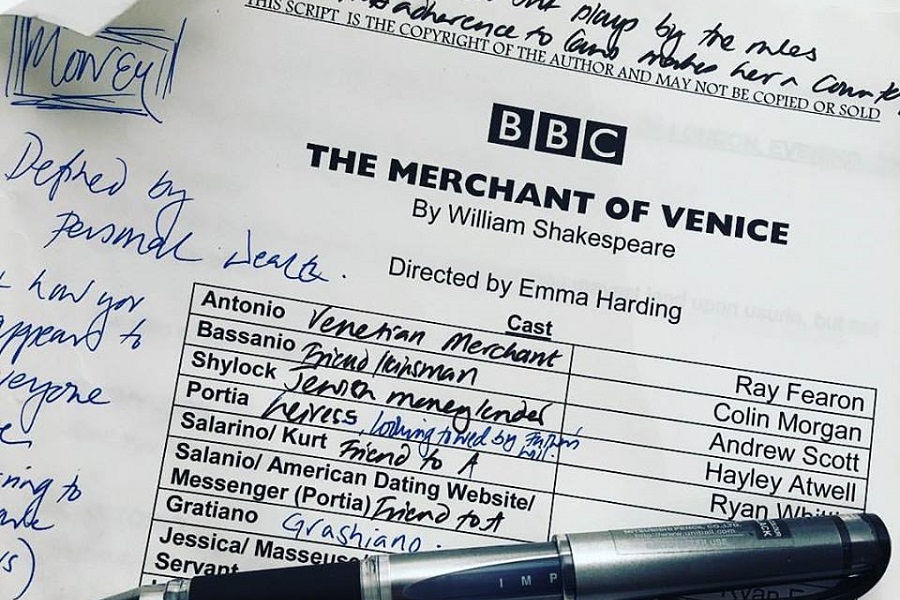 plays by the rules
adherence to
makes her a
THIS SCRIPT IS THE COPYRIGHT OF THE AUTHOR AND MAY NOT BE COPIED OR SOLD
Money
BBC
THE MERCHANT OF VENICE
By William Shakespeare
Directed by Emma Harding
Defined by
Personal wealth.
how you
appeared to
everyone
Cast
Antonio Venetian Merchant Ray Fearon
Bassanio Friend/kinsman Colin Morgan
Shylock Jewish moneylender Andrew Scott
Portia heiress, Hayley Atwell
by
Salarino/ Kurt Friend to A Ryan
Salanio/ American Dating Website/
Messenger (Portia) Friend to A
Gratiano Grashiano.
Jessica/ Masseuse
Servant
IMP